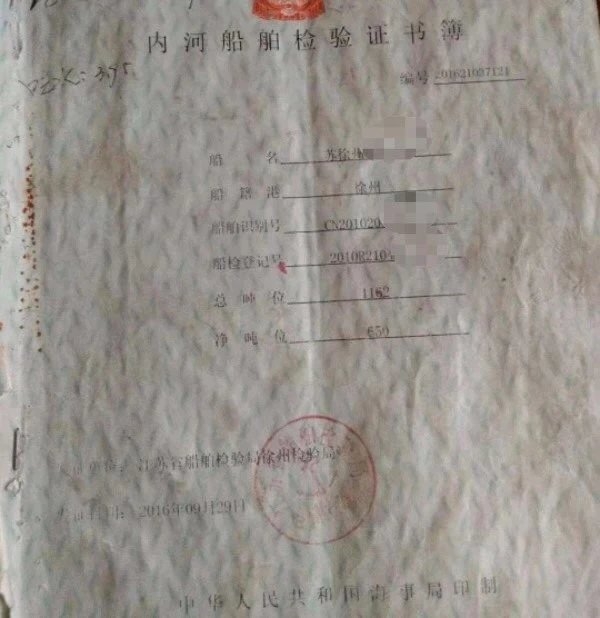 内河船舶检验证书簿
编号 201621097121
船名 苏徐州
船籍港 徐州
船舶识别号 CN201020
船检登记号 2010R210
总吨位 1162
净吨位 650
发证单位：江苏省船舶检验局徐州检验局
发证日期：2016年09月29日
中华人民共和国海事局印制